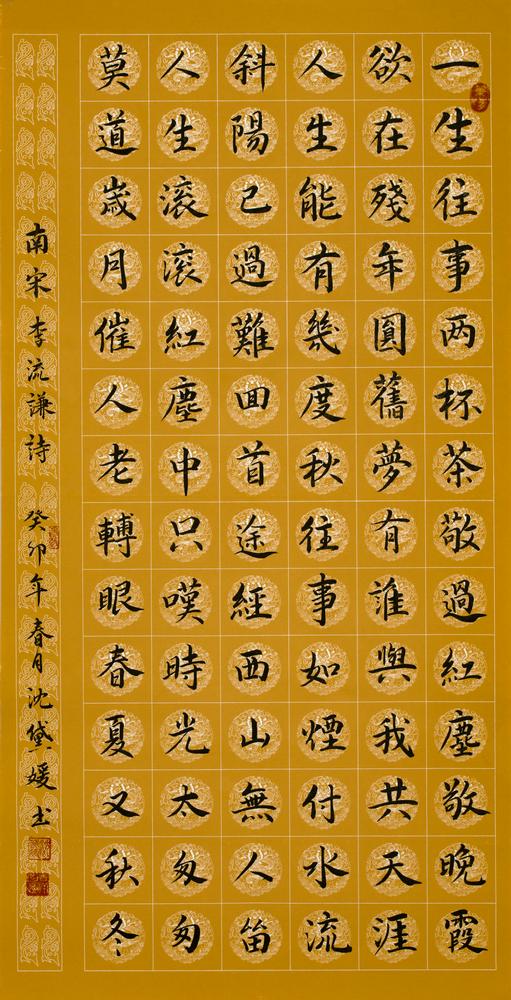 一生往事两杯茶敬過紅塵敬晚霞
欲在殘年圓舊夢有誰與我共天涯
人生能有幾度秋往事如煙付水流
斜陽已過難回首途經西山無人笛
人生滾滾紅塵中只嘆時光太匆匆
莫道歲月催人老轉眼春夏又秋冬
南宋李流謙詩
癸卯年春月沈黛媛书